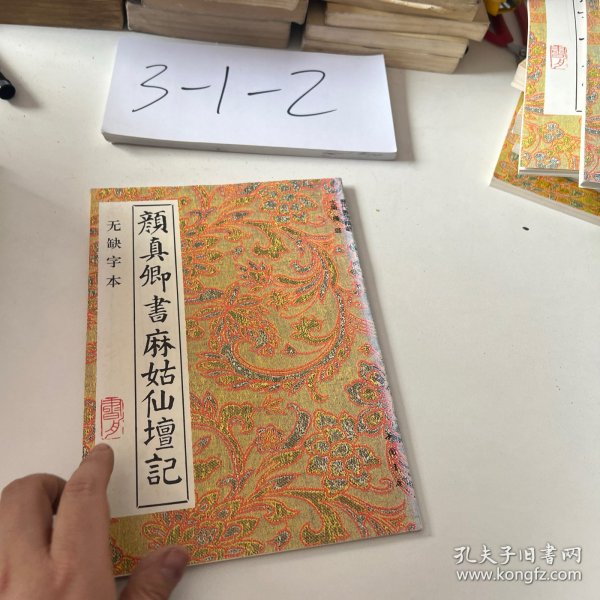 3-1-2
顔真卿書麻姑仙壇記
无缺字本
孔夫子旧書网
www.kongfz.com